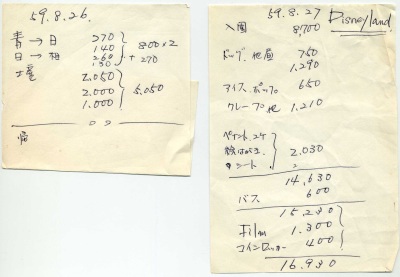 59.8.26.
青→日 270
日→柏 140
260
130
800×2
+ 270
土産 2.050
2.000
1.000
5.050
帰
59.8.27 Disneyland
入園 8,700
ドッグ、他昼 750
1.290
アイス、ポップ 650
クレープ他 1,210
ペイント、2ケ
絵はがき
シート
2.030
14,630
バス 600
15,230
Film 1.300
コインロッカー 400
16.930